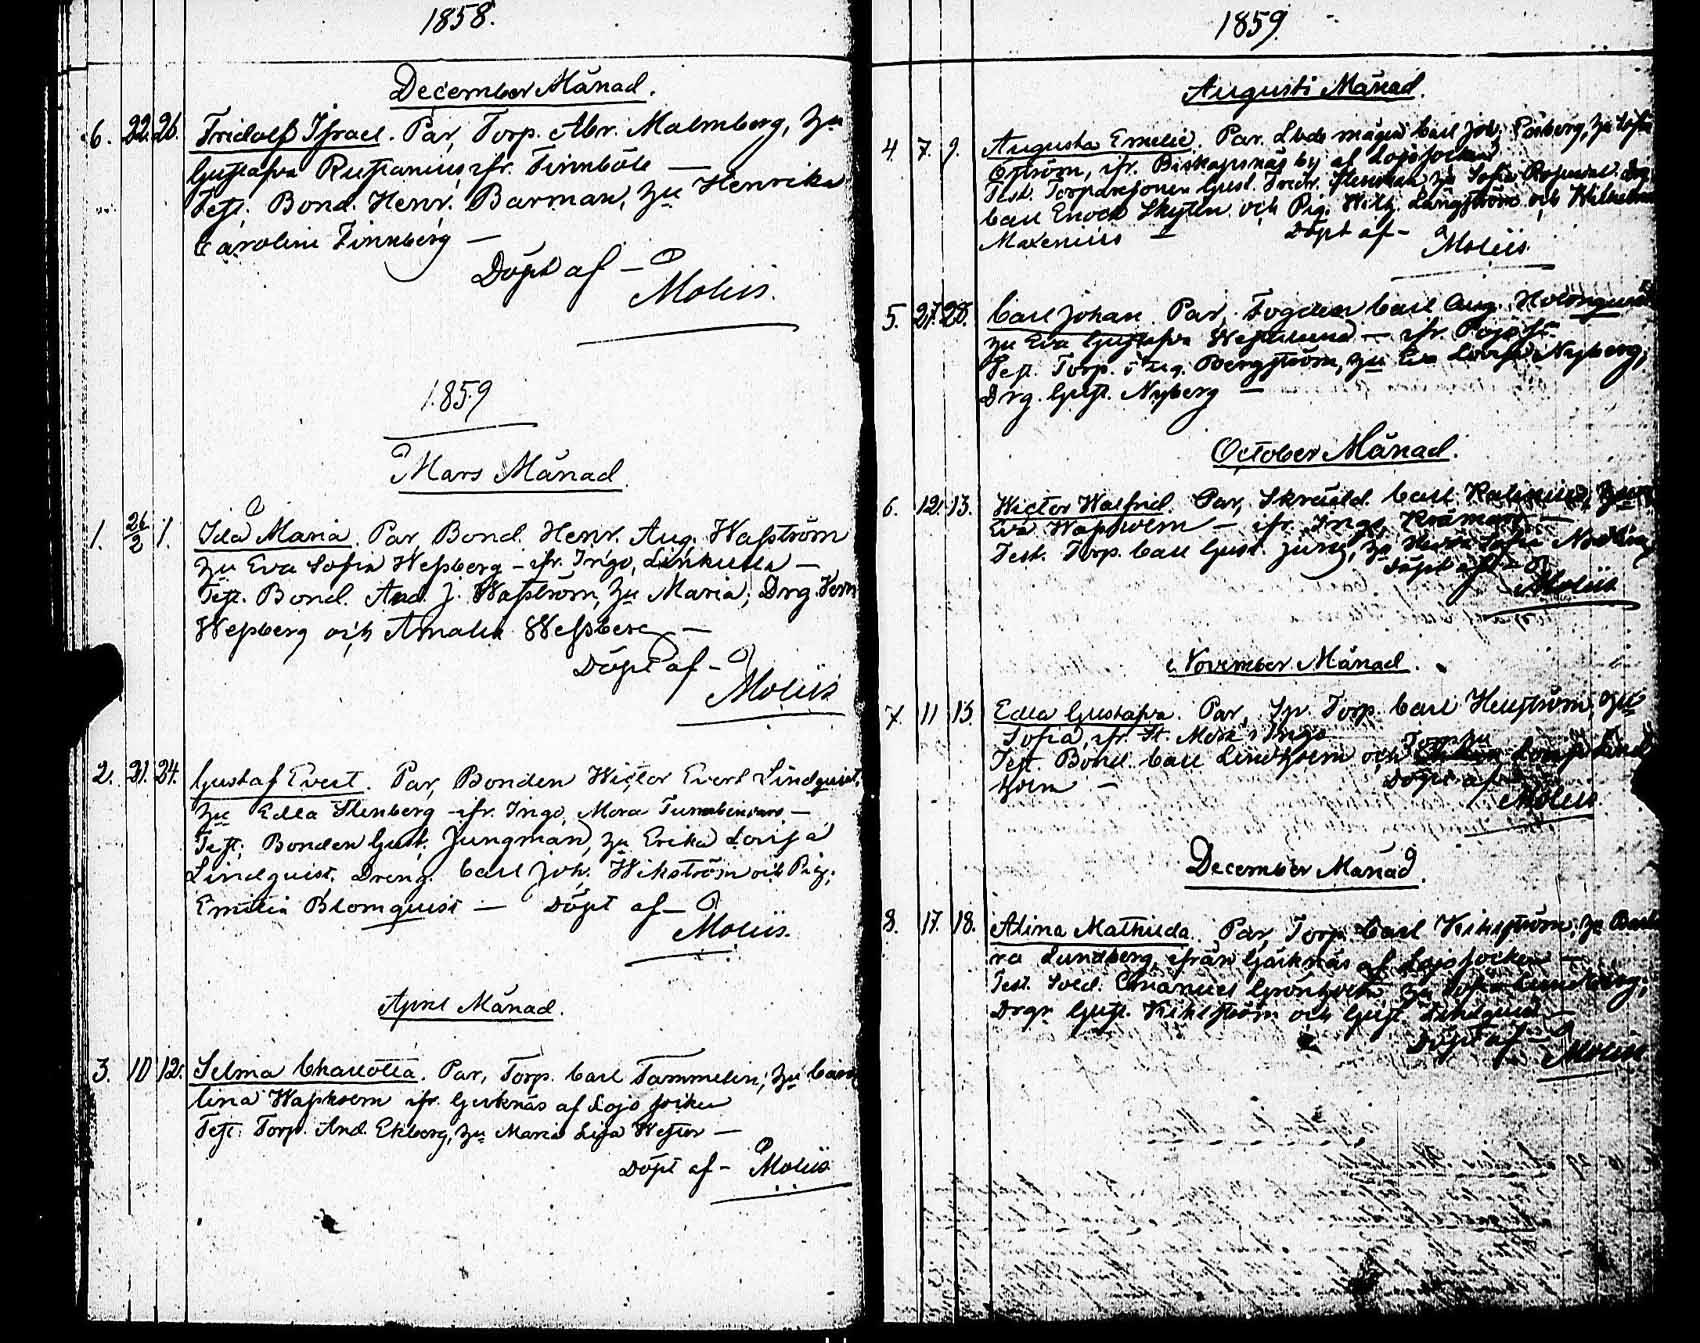 1858.
December Månad.
6. 22. 26. Fridolf Israel. Par, Torp. Abr. Malmberg, Hu
Gustafva ifr. Finnböle —
Test. Bond. Henr. Barman, Hu Henrika
Carolina Finnberg —
Döpt af —
Moliis.
1859
Mars Månad.
1. 26/2 1. Ida Maria. Par, Bond. Henr. Aug. Wasström
Hu Eva Sofia Wessberg — ifr. Ingo, Linkulla —
Test. Bond. And. J. Wasström, Hu Maria; Drg.
Wessberg och Amalia Wessberg —
Döpt af —
Moliis
2. 21. 24. Gustaf Evert. Par, Bonden Wictor Evert Lindquist,
Hu Edla Stenberg ifr. Ingo, Mora —
Test. Bonden Gust. Jungman, Hu Erika Lovisa
Lindquist, Dreng. Carl Joh. Wikström och Pig.
Emelia Blomquist — Döpt af —
Moliis.
April Månad.
3. 10 12. Selma Charlotta. Par, Torp. Carl Tammelin, Hu Caro
lina Washolm ifr. af Lojo socken
Test. Torp. And. Ekberg, Hu Maria Lisa Wester —
Döpt af — Moliis
1859.
Augusti Månad.
4. 7. 9. Augusta Emelie. Par. Carl Joh. Hu Sofia
Öström, ifr. Biskopsnäs by af Lojo socken
Test. Gust. Fredr. Hu Sofia
Carl Enock Skytén och Pig. Wilh. Långström och Wilhelmina
Maxenius — Döpt af —
Moliis
5. 27. 28. Carl Johan. Par, Fogden Carl Aug. Holmquist
Hu Eva Gustafva Westlund — ifr.
Test. Torp. Bergström, Hu Eva Lovisa Nyberg,
Drg. Gust. Nyberg —
October Månad.
6. 12. 13. Wictor Walfrid. Par, Carl Hu
Eva Washolm — ifr. Ingo,
Test. Torp. Carl Gust. Hu Sofia
Döpt af —
Moliis
November Månad.
7. 11 13. Edla Gustafva. Par, Torp. Carl Hu
Sofia, ifr. St. Mora i Ingo
Test. Bond. Carl Lindholm och Lovisa Lind
holm — Döpt af —
Moliis
December Månad.
8. 17. 18. Alina Mathilda. Par, Torp. Carl Hu Barba
ra Lundberg, ifrån af Lojo socken —
Test. Sold. Emanuel Hu Sofia Lundberg,
Drgr. Gust. och Gust. Lindquist —
Döpt af —
Moliis